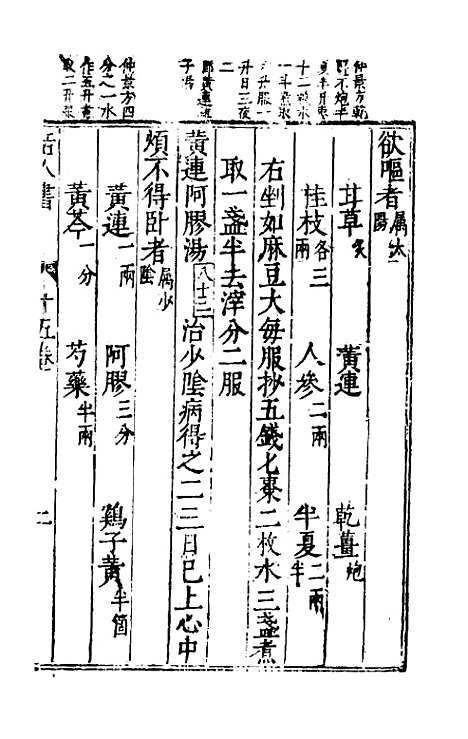 仲景方乾
薑不炮半
夏半升棗
十二枚水
一斗煮取
六升服一
升日三夜
二
即黃連瀉
子湯
仲景方四
分之一水
作五升煮
取二升服
欲嘔者屬太陽
甘草炙　黃連　乾薑炮
桂枝各三兩　人參二兩　半夏二兩半
右剉如麻豆大每服抄五錢匕棗二枚水三盞煮
取一盞半去滓分二服
黃連阿膠湯八十三　治少陰病得之二三日已上心中
煩不得卧者屬少陰
黃連一兩　阿膠三分　鷄子黃半箇
黃芩一分　芍藥半兩
活人書　十五卷　二